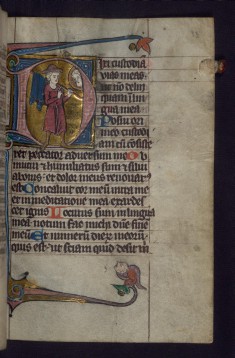 ixi custodia
vias meas
ut nō delin
quam ī lin
gua mea
Posui ori
meo custodi
am cū cōsiste
ret peccator adversum me Ob
mutui & humiliatus sum & silui
a bonis et dolor meus renovat
est Concaluit cor meū intra me
et in meditatione mea exardes
cet ignis Locutus sum in lingua
mea notum fac michi dñe finē
meū Et numerū dierum meorū
quis est ut sciam quid desit m